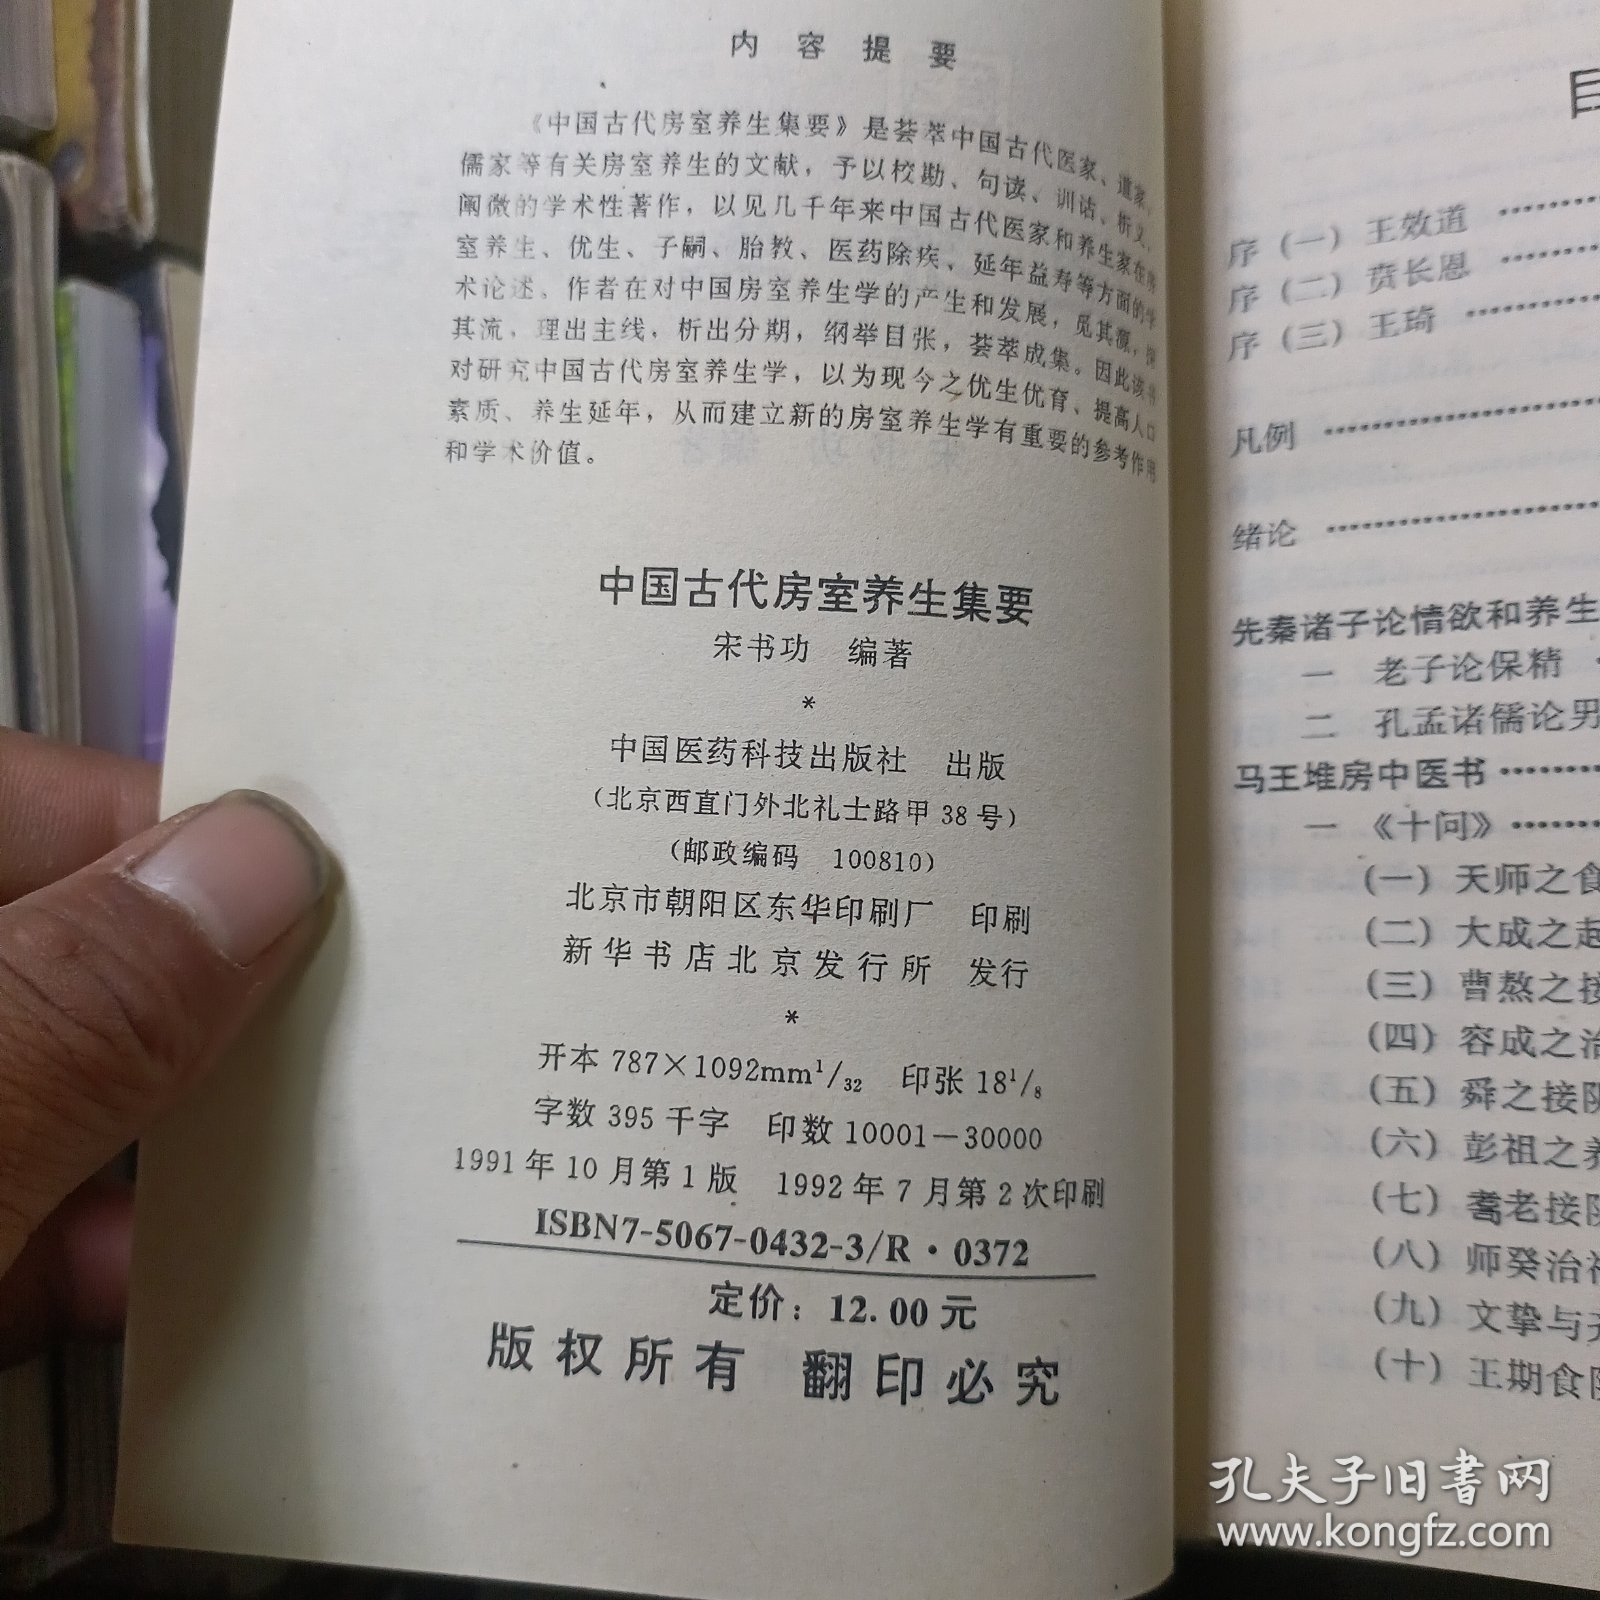 内容提要
《中国古代房室养生集要》是荟萃中国古代医家、道家、
儒家等有关房室养生的文献，予以校勘、句读、训诂、析义、
阐微的学术性著作，以见几千年来中国古代医家和养生家在房
室养生、优生、子嗣、胎教、医药除疾、延年益寿等方面的学
术论述。作者在对中国房室养生学的产生和发展，觅其源，
其流，理出主线，析出分期，纲举目张，荟萃成集。因此该书
对研究中国古代房室养生学，以为现今之优生优育、提高人口
素质、养生延年，从而建立新的房室养生学有重要的参考作用
和学术价值。
中国古代房室养生集要
宋书功 编著
*
中国医药科技出版社 出版
（北京西直门外北礼士路甲38号）
（邮政编码 100810）
北京市朝阳区东华印刷厂 印刷
新华书店北京发行所 发行
*
开本 787×1092mm 1/32 印张 18 1/8
字数 395 千字 印数 10001—30000
1991年10月第1版 1992年7月第2次印刷
ISBN7-5067-0432-3/R·0372
定价：12.00元
版权所有 翻印必究
目
序（一）王效道
序（二）贲长恩
序（三）王琦
凡例
绪论
先秦诸子论情欲和养生
一 老子论保精
二 孔孟诸儒论男
马王堆房中医书
一 《十问》
（一）天师之食
（二）大成之起
（三）曹熬之接
（四）容成之治
（五）舜之接阴
（六）彭祖之养
（七）耈老接阴
（八）师癸治神
（九）文挚与齐
（十）王期食阴
孔夫子旧书网
www.kongfz.com